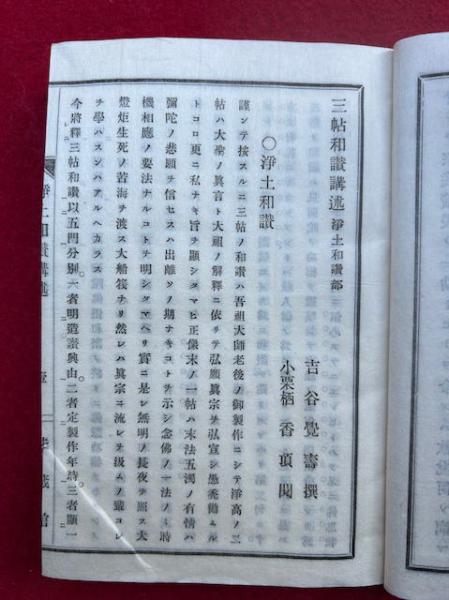 三帖和讃講述 淨土和讃部
吉谷覺壽撰
小栗栖香頂閲
○淨土和讃
謹ンテ按スルニ三帖ノ和讃ハ吾祖大師老後ノ御製作ニシテ淨高ノ二
帖ハ大聖ノ眞言ト大祖ノ解釋ニ依リテ弘願眞宗ヲ弘宣シ愚禿勸ムル
トコロ更ニ私ナキ旨ヲ顯シタマヒ正像末ノ一帖ハ末法五濁ノ有情ハ
彌陀ノ悲願ヲ信セスハ出離ソノ期ナキコトヲ示シ念佛ノ一法ノミ時
機相應ノ要法ナルコトヲ明シタマヘリ實ニ是レ無明ノ長夜ヲ照ス大
燈炬生死ノ苦海ヲ渡ス大船筏ナリ然レハ眞宗ニ流レヲ汲ムノ輩コレ
ヲ學ハスンハアルヘカラス
今將釋三帖和讃以五門分別一者明造讃興由二者定製作年時三者顯一
淨土和讃講述
壹